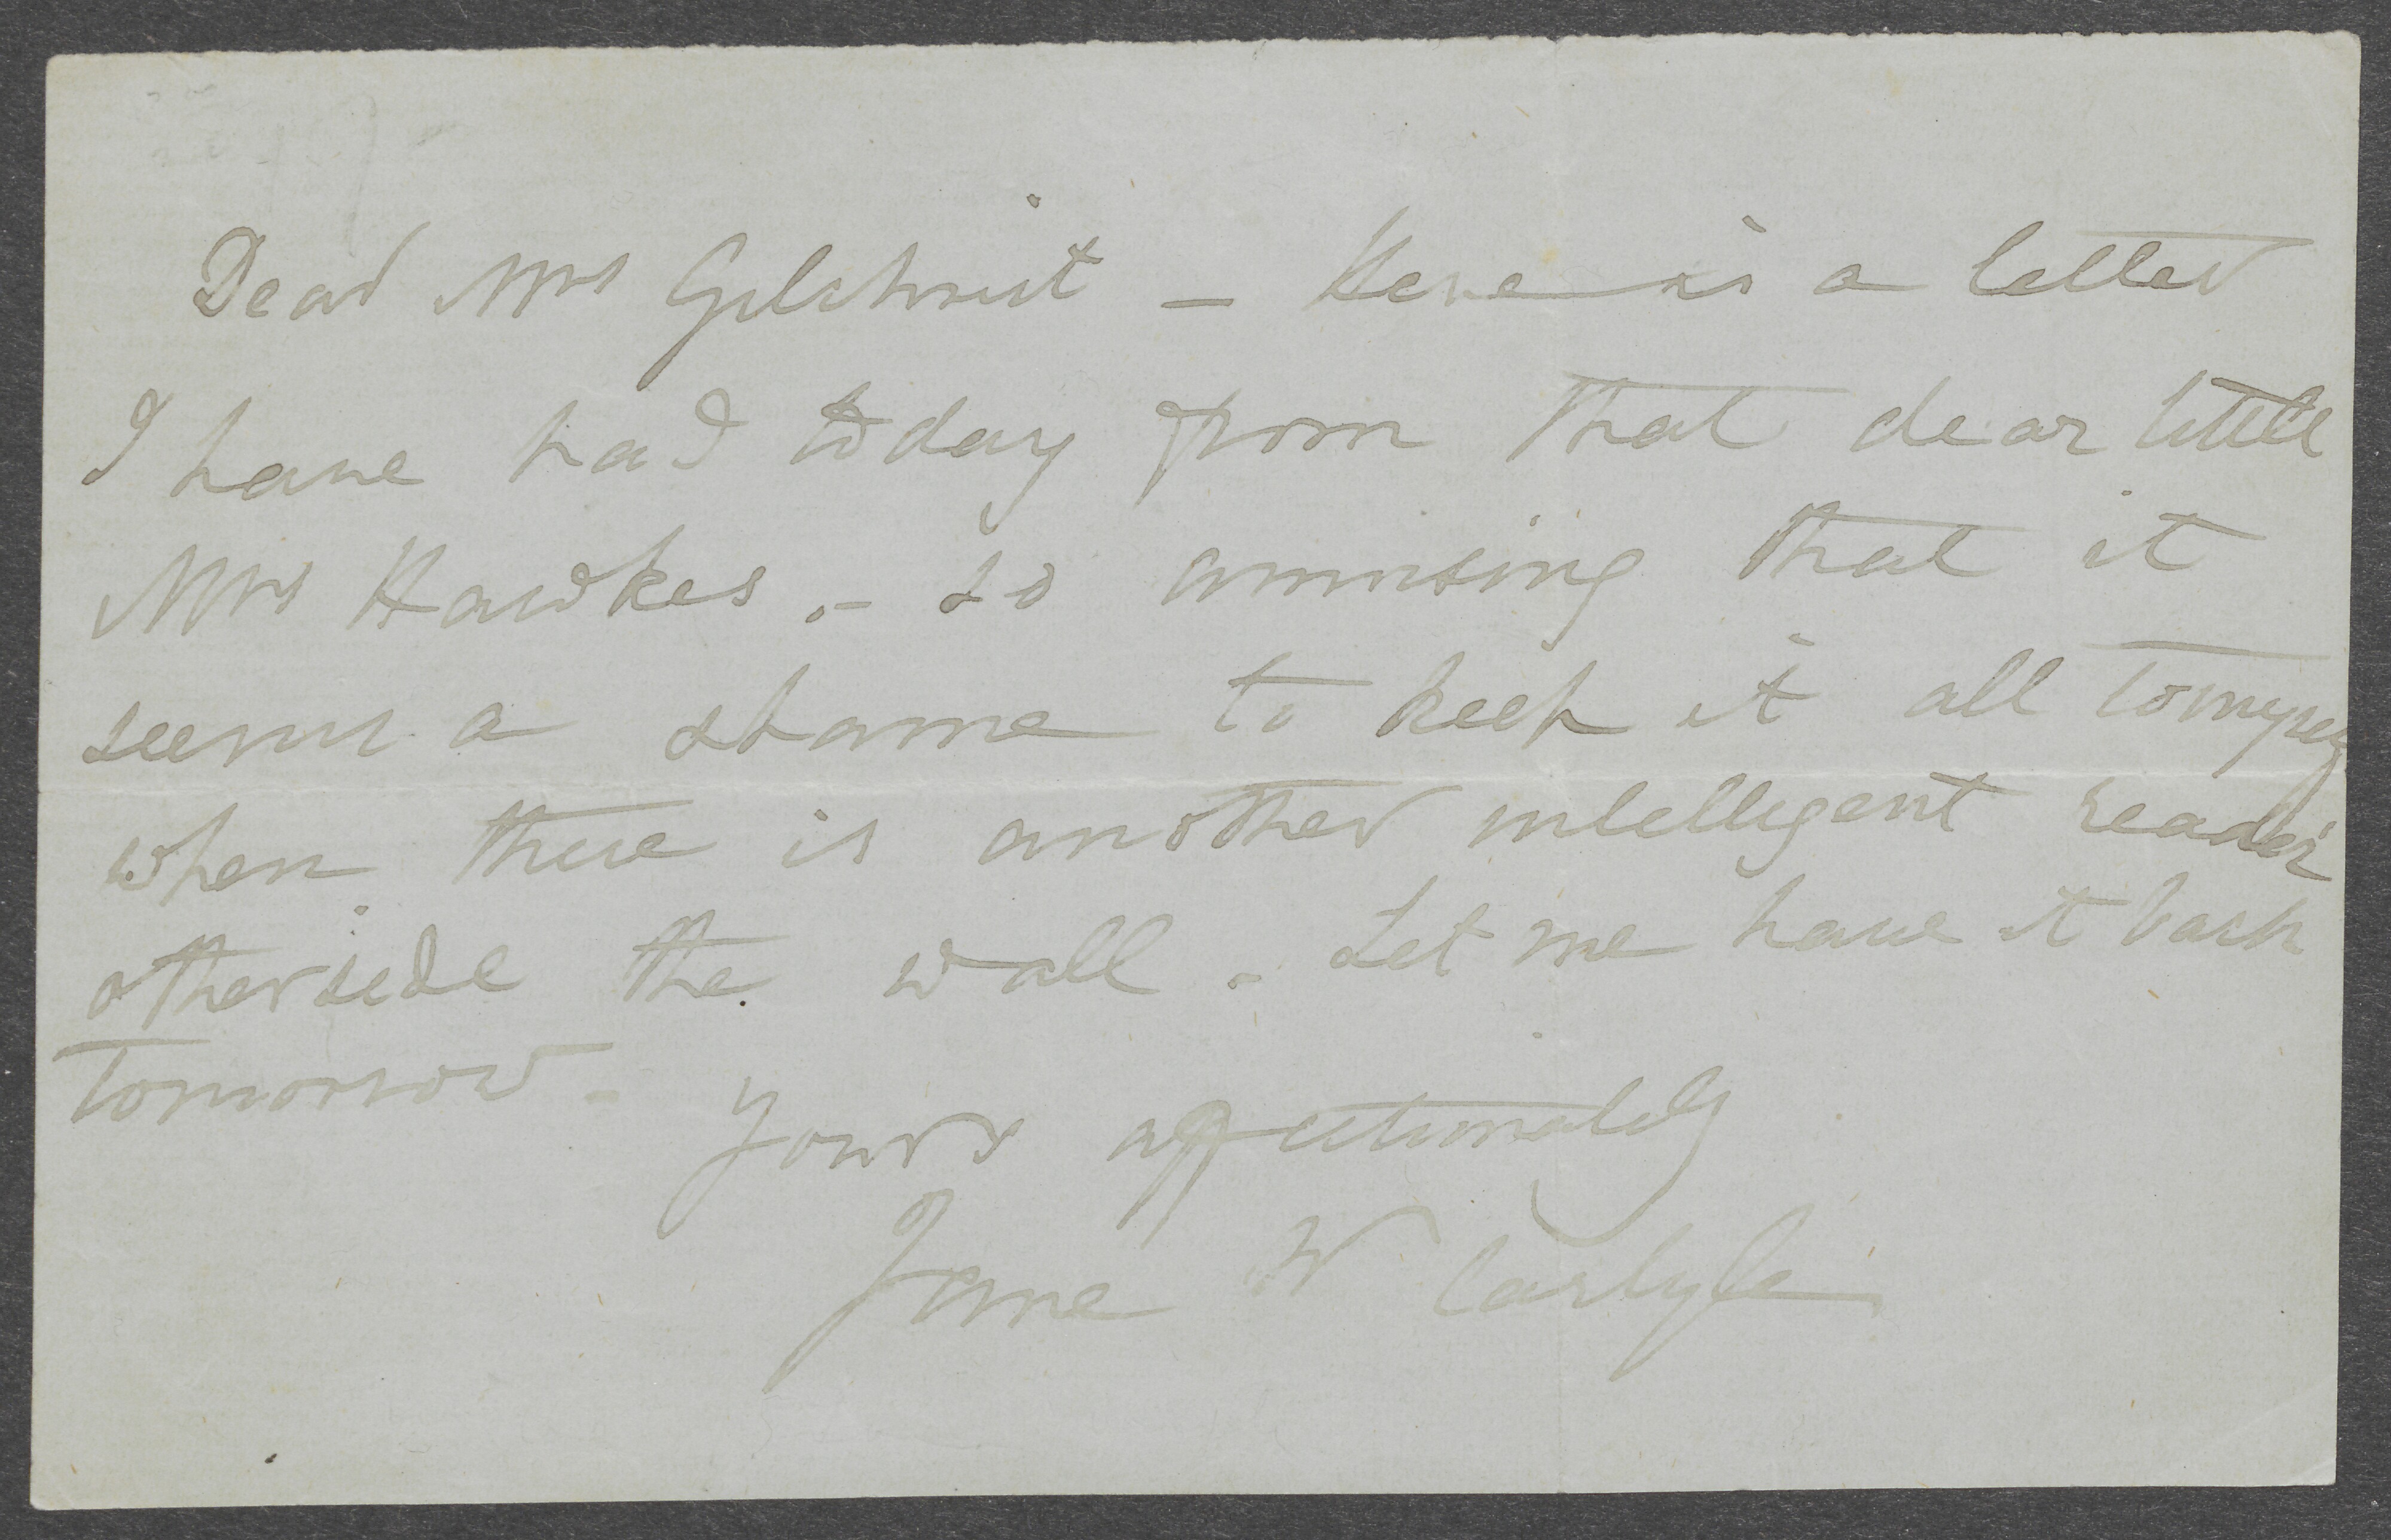 Dear Mrs Gilchrist – Here is a letter
I have had today from that dear little
Mrs Hawkes. – so amusing that it
seems a shame to keep it all to myself
when there is another intelligent reader
otherside the wall – Let me have it back
tomorrow –
Yours affectionately
Jane W Carlyle